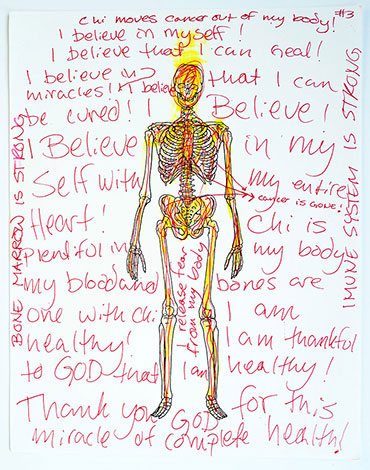 Chi moves cancer out of my body! #3
I believe in myself!
I believe that I can heal!
I believe in that I can
miracles! I believe
be cured! I Believe!
I Believe in my
Self with my entire
cancer is gone!
Heart! Chi is
plentiful in my body
my blood and bones are
one with chi I am
healthy! I am thankful
to GOD that I am healthy!
Thank you GOD for this
miracle of complete health!
BONE MARROW IS STRONG
IMUNE SYSTEM IS STRONG
I release fear
from my body